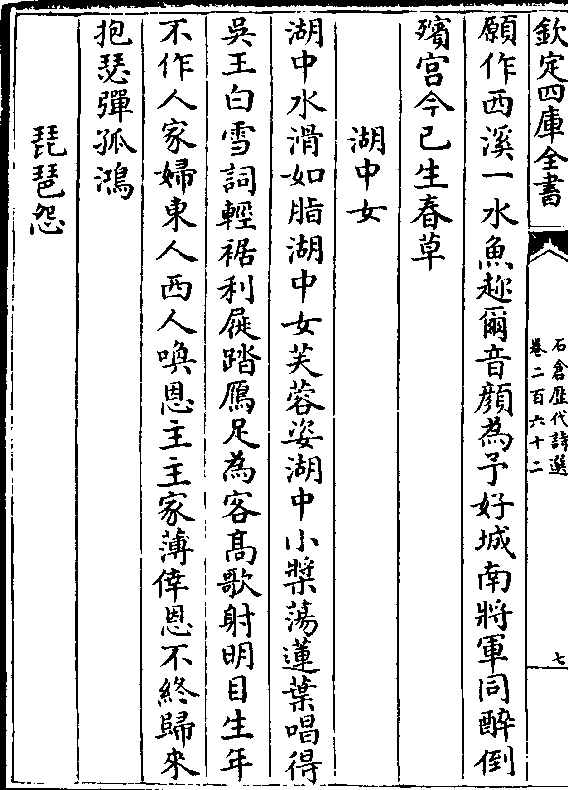 欽定四庫全書
石倉歷代詩選
卷二百六十二
七
願作西溪一水魚趂爾音顔為予好城南將軍同醉倒
殯宫今已生春草
湖中女
湖中水滑如脂湖中女芙蓉姿湖中小槳蕩蓮葉唱得
吳王白雪詞輕裾利屣踏鴈足為客髙歌射明目生年
不作人家婦東人西人喚恩主主家薄倖恩不終歸來
抱瑟彈孤鴻
琵琶怨